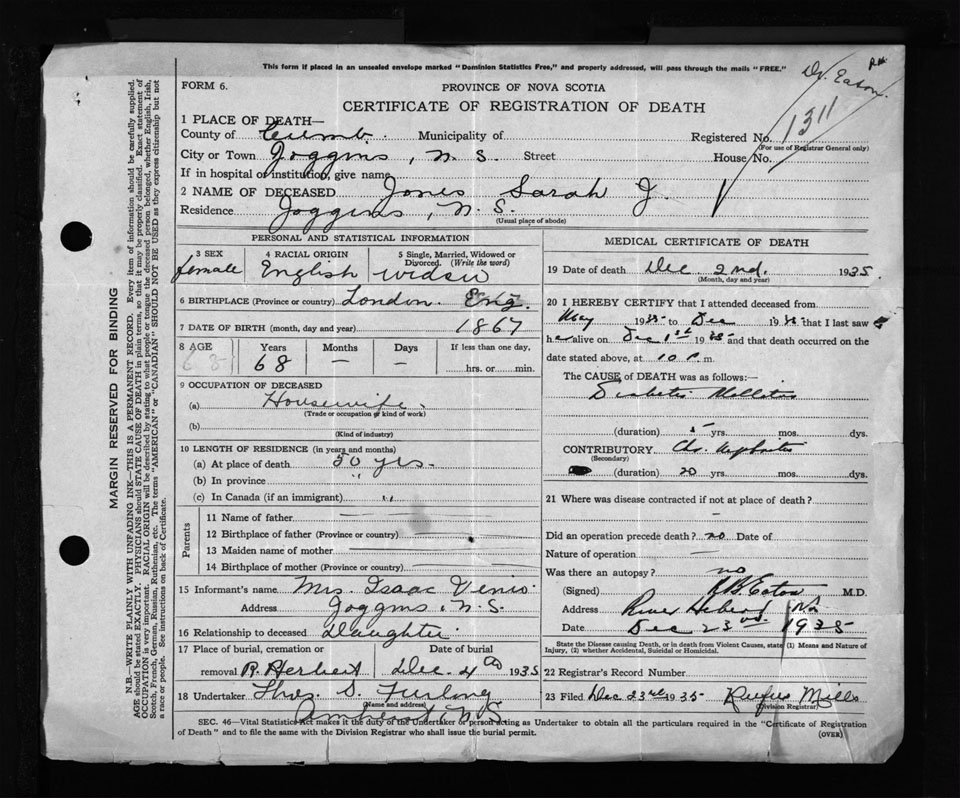 This form if placed in an unsealed envelope marked "Dominion Statistics Free," and properly addressed, will pass through the mails "FREE."
Dr. Eaton.
FORM 6.
PROVINCE OF NOVA SCOTIA
CERTIFICATE OF REGISTRATION OF DEATH
1311
1 PLACE OF DEATH—
County of Cumb. Municipality of
Registered No.
(For use of Registrar General only)
City or Town Joggins, N.S. Street House No.
If in hospital or institution, give name
2 NAME OF DECEASED Jones Sarah J.
Residence Joggins, N.S.
(Usual place of abode)
PERSONAL AND STATISTICAL INFORMATION
3 SEX 4 RACIAL ORIGIN 5 Single, Married, Widowed or Divorced. (Write the word)
female English widow
6 BIRTHPLACE (Province or country) London. Eng.
7 DATE OF BIRTH (month, day and year) 1867
8 AGE Years Months Days If less than one day,
68 — — hrs. or min.
9 OCCUPATION OF DECEASED
(a) Housewife.
(Trade or occupation or kind of work)
(b)
(Kind of industry)
10 LENGTH OF RESIDENCE (in years and months)
(a) At place of death 50 yrs.
(b) In province "
(c) In Canada (if an immigrant) "
Parents
11 Name of father —
12 Birthplace of father (Province or country)
13 Maiden name of mother
14 Birthplace of mother (Province or country) —
15 Informant's name Mrs. Isaac
Address Joggins, N.S.
16 Relationship to deceased Daughter
17 Place of burial, cremation or removal Date of burial
R. Herbert Dec. 4 1935
18 Undertaker Thos. S. Furlong
(Name and address)
Amherst N.S.
MEDICAL CERTIFICATE OF DEATH
19 Date of death Dec 2nd. 1935.
(Month, day and year)
20 I HEREBY CERTIFY that I attended deceased from
May 1935 to Dec 1935 that I last saw
her alive on Dec 1st 1935 and that death occurred on the
date stated above, at 10 P.m.
The CAUSE of DEATH was as follows:—
Diabetes Mellitus
(duration) 5 yrs. mos. dys.
CONTRIBUTORY Chr. Nephritis
(Secondary)
(duration) 20 yrs. mos. dys.
21 Where was disease contracted if not at place of death?
—
Did an operation precede death? no Date of
Nature of operation —
Was there an autopsy? no
(Signed) Eaton M.D.
Address River Hebert NS
Date Dec 23rd. 1935
State the Disease causing Death, or in death from Violent Causes, state (1) Means and Nature of
Injury, (2) whether Accidental, Suicidal or Homicidal.
22 Registrar's Record Number
23 Filed Dec 23rd 1935 Rufus Mills
(Division Registrar)
SEC. 46—Vital Statistics Act makes it the duty of the Undertaker or person acting as Undertaker to obtain all the particulars required in the "Certificate of Registration
of Death" and to file the same with the Division Registrar who shall issue the burial permit.
(OVER)
MARGIN RESERVED FOR BINDING
N.B.—WRITE PLAINLY WITH UNFADING INK—THIS IS A PERMANENT RECORD. Every item of information should be carefully supplied.
AGE should be stated EXACTLY. PHYSICIANS should STATE CAUSE OF DEATH in plain terms, so that it may be properly classified. Exact statement of
OCCUPATION is very important. RACIAL ORIGIN will be described by stating to what people or tongue the deceased person belonged, whether English, Irish,
Scotch, French, German, Russian, Ruthenian, etc. The terms "AMERICAN" or "CANADIAN" SHOULD NOT BE USED as they express citizenship but not
a race or people. See instructions on back of Certificate.